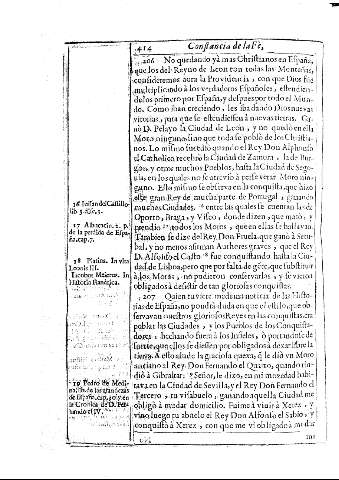 414
Constancia de la Fè,
206 No quedando yà mas Christianos en España,
que los del Reyno de Leon con todas las Montañas,
consideremos aora la Providencia, con que Dios fuè
multiplicando à los verdaderos Españoles, estendien-
dolos primero por España, y despues por todo el Mun-
do. Como iban creciendo, les iba dando Dios nuevas
vitorias, para que se estendiessen à nuevas tierras. Ga-
nò D. Pelayo la Ciudad de Leon, y no quedò en ella
Moro ninguno, sino que toda se poblò de los Christia-
nos. Lo mismo sucediò quando el Rey Don Alphonso
el Catholico recobrò la Ciudad de Zamora, la de Bur-
gos, y otros muchos Pueblos, hasta la Ciudad de Sego-
via, en los quales no se atreviò à residir Moro nin-
guno. Ello mismo se observò en la conquista, que hizo
gran Rey de mucha parte de Portugal, ganando
muchas Ciudades, entre las quales se cuentan las de
Oporto, Braga, y Viseo, donde dizen, que matò, y
prendiò todos los Moros, que en ellas se hallavan.
Tambien se dize del Rey Don Fruela, que ganò à Setu-
bal, y no menos afirman Authores graves, que el Rey
D. Alfonso el Casto fuè conquistando hasta la Ciu-
dad de Lisboa, pero que por falta de gẽte, que substituir
à los Moros, no pudieron conservarlos, y se vieron
obligados à desistir de tan gloriosas conquistas.
207 Quien tuviere mediana noticia de las Histo-
rias de España, no pondrà duda en que el estilo, que ob-
servavan nuestros gloriosos Reyes en las conquistas, era
poblar las Ciudades, y los Pueblos de los Conquista-
dores, hechando fuera à los Infieles, ò portandose de
suerte, que ellos se diessen por obligados à dexar la
tierra. A esto alude la graciosa quexa, q̃ le diò un Moro
anciano al Rey Don Fernando el Quarto, quando rin-
diò à Gibraltar: Señor, le dixo, en mi mocedad habi-
tava en la Ciudad de Sevilla, y el Rey Don Fernando el
Tercero, tu visabuelo, ganando aquella Ciudad me
obligò à mudar domicilio. Fuime à vivir à Xerez, y
vino luego tu abuelo el Rey Don Alfonso el Sabio, y
conquistò à Xerez, con que me vi obligado à mudar
16 Iulian del Castillo
lib. 3.
17 Abucacin
de la perdida de Espa-
ña, cap. 7.
18 Platina. In vita
Leonis III.
Historia
19 Pedro de Medi-
na, lib. de las grandezas
de España, cap. 50. y en
la Coronica de D. Fer-
nando el IV.